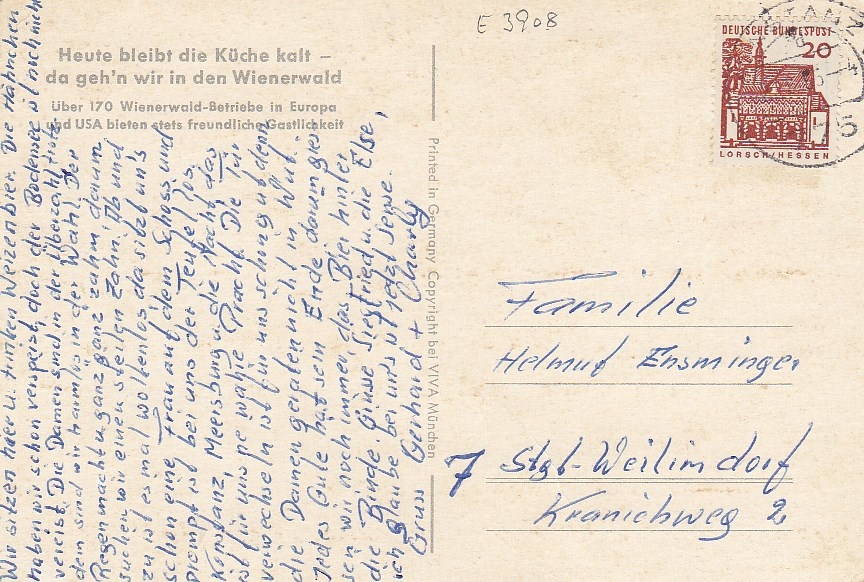 E 3908
Heute bleibt die Küche kalt –
da geh'n wir in den Wienerwald
Über 170 Wienerwald-Betriebe in Europa
und USA bieten stets freundliche Gastlichkeit
Wir sitzen hier u. trinken Weizenbier. Die Hähnchen
haben wir schon verspeist, doch der Bodensee ist noch nicht
vereist. Die Damen sind in der Überzahl, trotz
dem sind wir harmlos in der Wahl. Der
Regen macht uns ganz ganz zahm, darum
suchen wir einen steilen Zahn. Ab und
zu ist es mal wolkenlos, da sitzt uns
schon eine Frau auf dem Schoss und
prompt ist bei uns der Teufel los.
Konstanz, Meersburg u. die Nacht das
ist für uns ne wahre Pracht. Die Tür
verwechseln ist für uns schon gut denn
die Damen geraten nicht in Wut.
Jedes Gute hat sein Ende darum gies
sen wir noch immer das Bier hinter
die Binde. Grüsse Siegfried u. die Else,
ich glaube bei uns ist jetzt Sense.
Gruss Gerhard + Charly
Printed in Germany Copyright bei VIVA München
DEUTSCHE BUNDESPOST
20
LORSCH/HESSEN
5
Familie
Helmut Ensminger
7 Stgt-Weilimdorf
Kranichweg 2